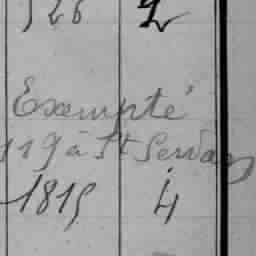 526 2
Exempté
119 à St Servan
1815 4